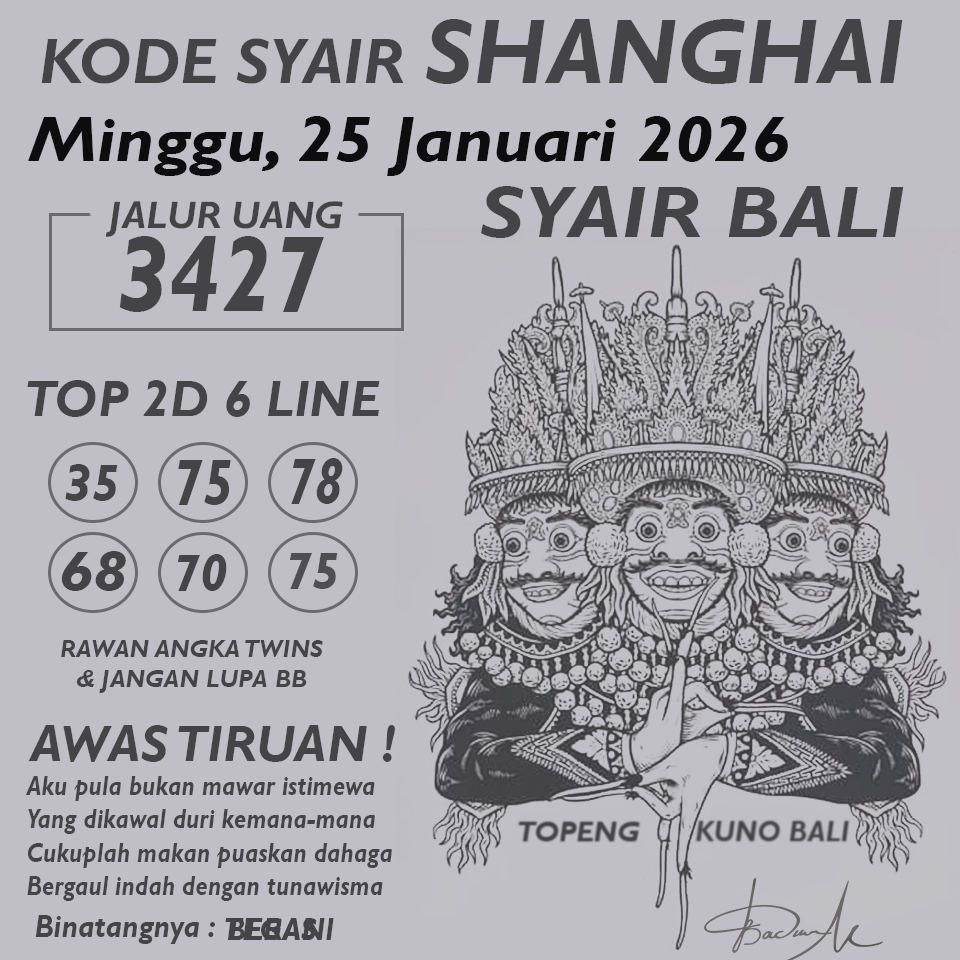 KODE SYAIR SHANGHAI
Minggu, 25 Januari 2026
SYAIR BALI
JALUR UANG
3427
TOP 2D 6 LINE
35 75 78
68 70 75
RAWAN ANGKA TWINS
& JANGAN LUPA BB
AWAS TIRUAN !
Aku pula bukan mawar istimewa
Yang dikawal duri kemana-mana
Cukuplah makan puaskan dahaga
Bergaul indah dengan tunawisma
Binatangnya :
TOPENG KUNO BALI